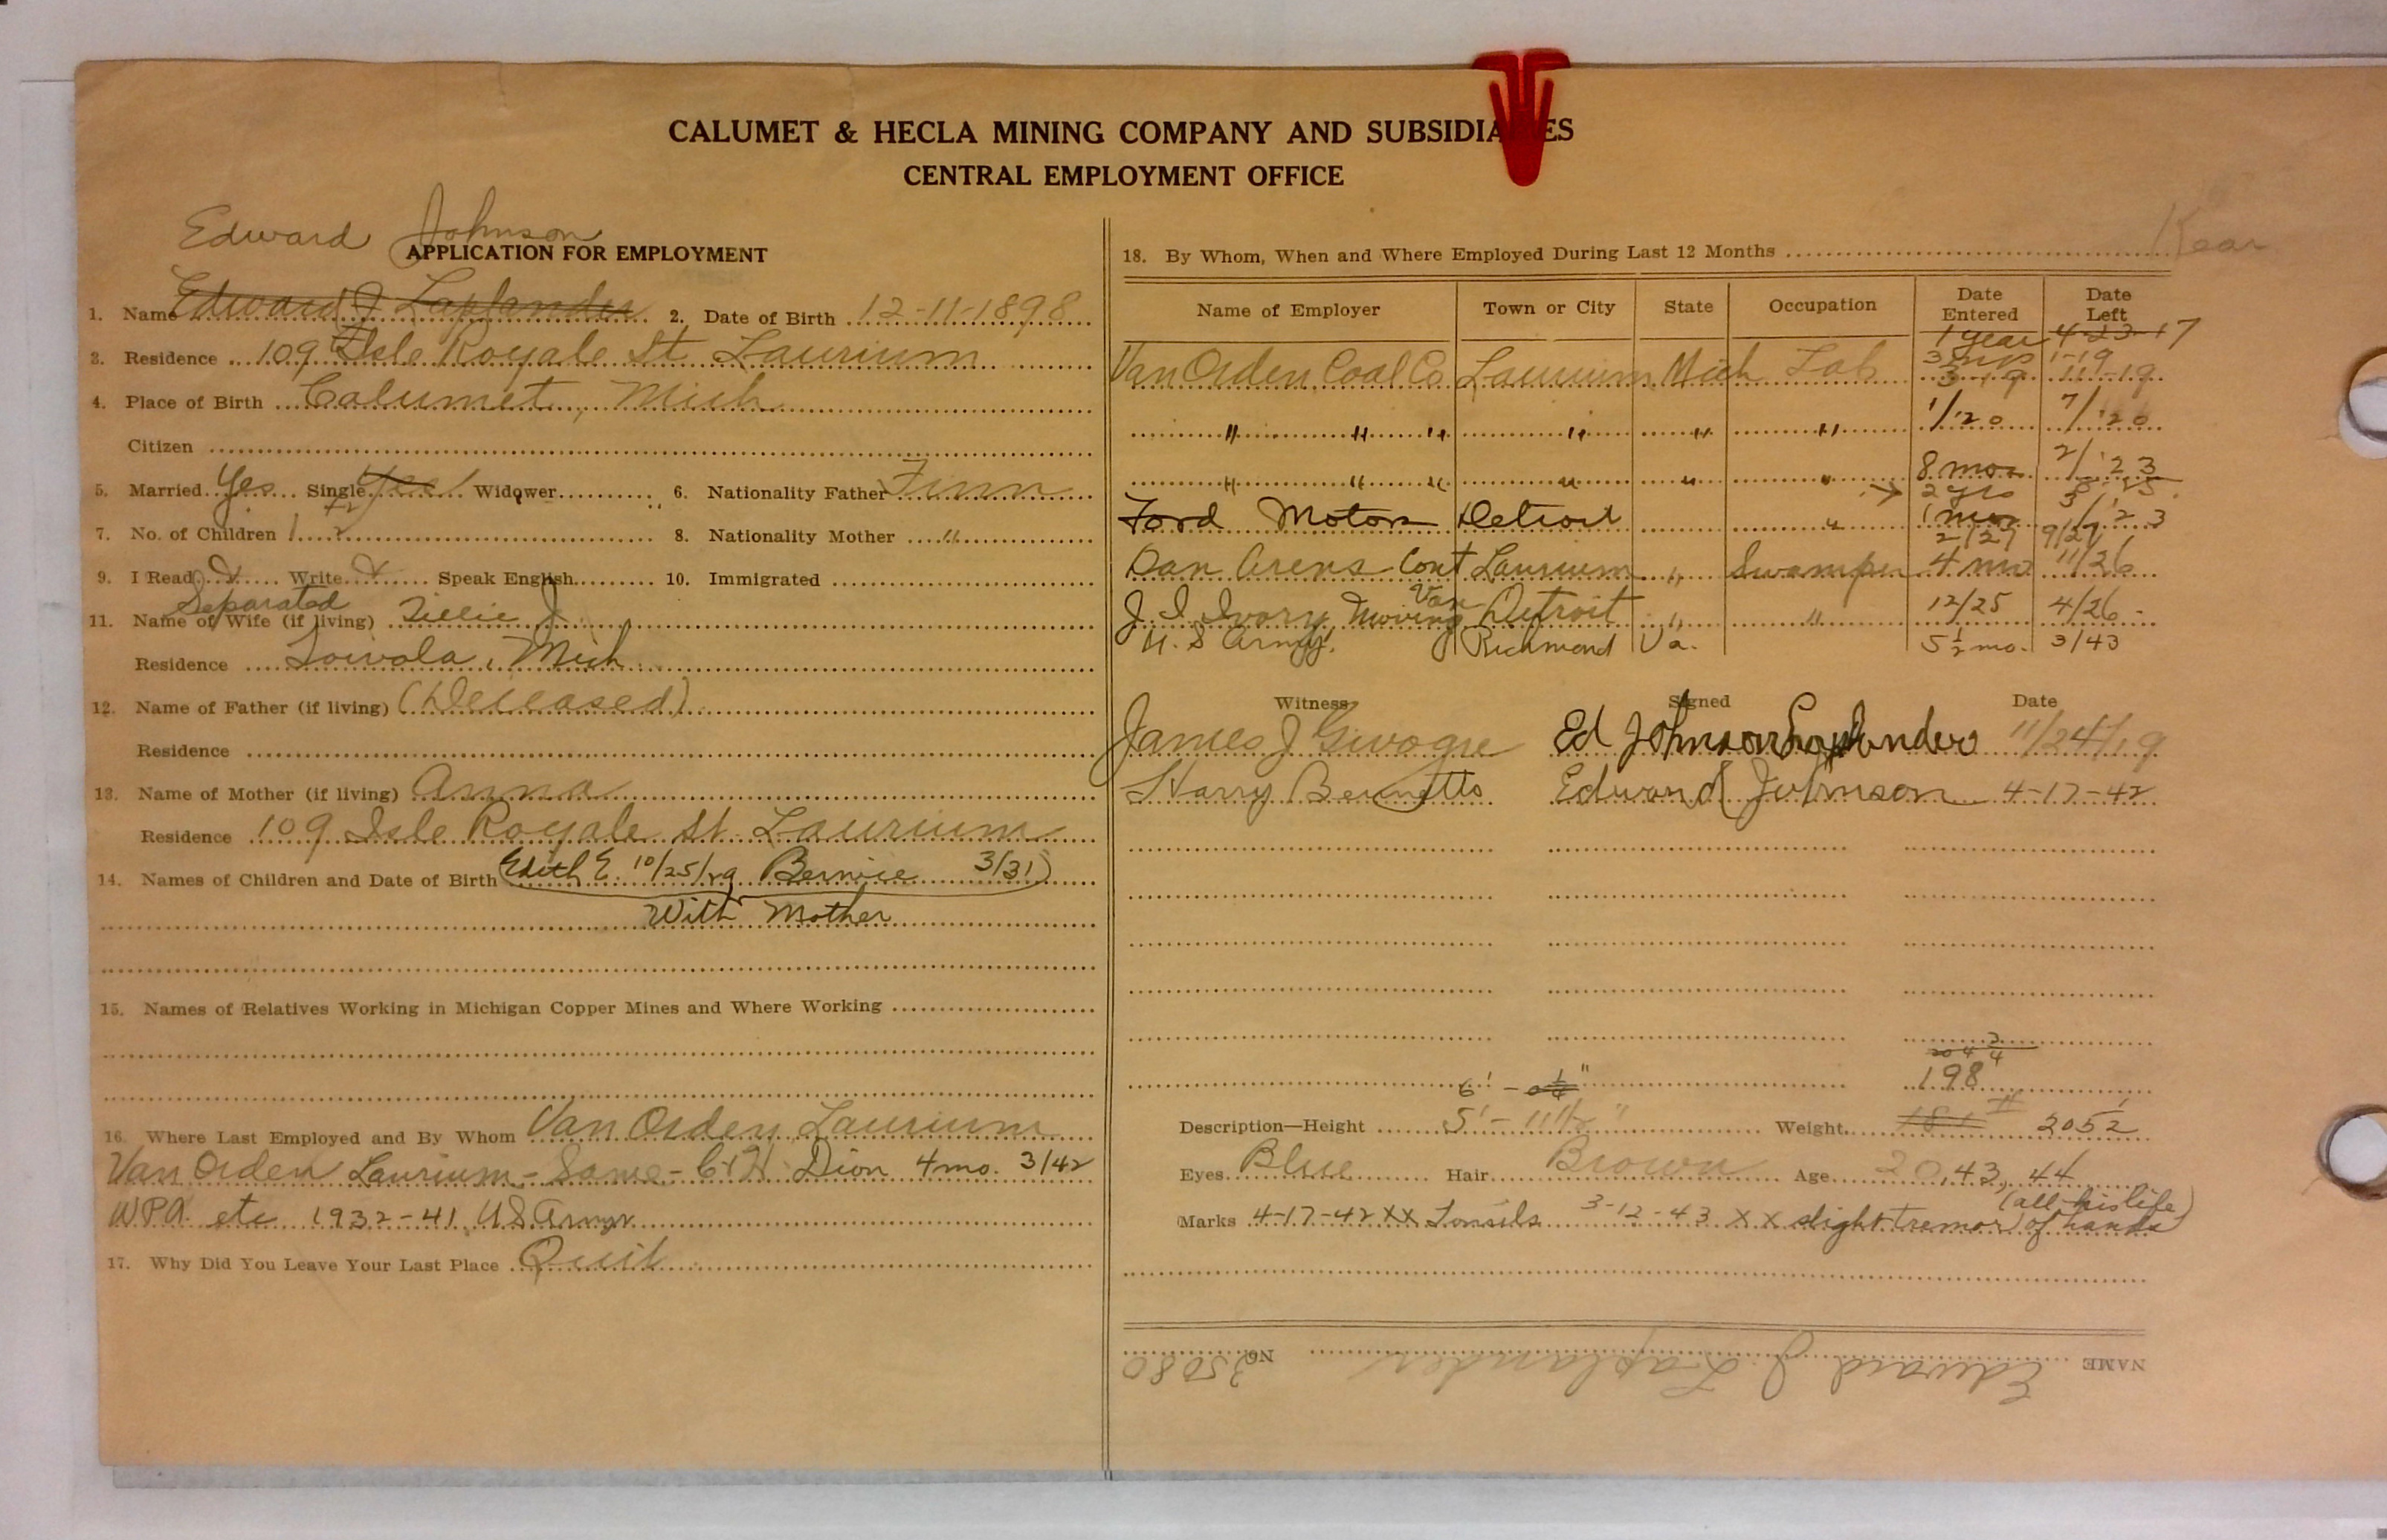 CALUMET & HECLA MINING COMPANY AND SUBSIDIA ES
CENTRAL EMPLOYMENT OFFICE
Edward Johnson
APPLICATION FOR EMPLOYMENT
1. Name Edward J Laplander 2. Date of Birth 12-11-1898
3. Residence 109 Isle Royale St. Laurium
4. Place of Birth Calumet, Mich
Citizen
5. Married Yes Single Yes Widower 6. Nationality Father Finn
7. No. of Children 1 2 8. Nationality Mother "
9. I Read Write Speak English 10. Immigrated
Separated
11. Name of Wife (if living) Tillie J.
Residence Toivola, Mich
12. Name of Father (if living) (Deceased)
Residence
13. Name of Mother (if living) Anna
Residence 109 Isle Royale St. Laurium
14. Names of Children and Date of Birth Edith E. 10/25/29 Bernice 3/31
With Mother
15. Names of Relatives Working in Michigan Copper Mines and Where Working
16. Where Last Employed and By Whom Van Orden Laurium
Van Orden Laurium - Same - C&H Dion 4 mo. 3/42
WPA etc 1932-41 US Army
17. Why Did You Leave Your Last Place Quit
Kear
18. By Whom, When and Where Employed During Last 12 Months
Name of Employer Town or City State Occupation Date Entered Date Left
1 year 4-23-17
3 mos 1-19
Van Orden Coal Co Laurium Mich Lab 3-19 11-19
" " " " " " 1/'20 7/'20
" " " " " " 8 mos. 2/'23
2 yrs
Ford Motors Detroit " 1 mo 3/'23
2/27 9/27
Dan Arens Cont Laurium " Swamper 4 mo 11/26
J. I. Ivory Moving Van Detroit " " 12/25 4/26
U.S Army Richmond Va. 5 1/2 mo. 3/43
Witness Signed Date
James J Ed Johnson Laplander 11/24/19
Harry Bennetts Edward Johnson 4-17-42
204 3/4
6' - 0 1/4" 198
Description—Height 5' - 11 1/2" Weight 181 205 1/2
Eyes Blue Hair Brown Age 20, 43, 44
(all his life)
Marks 4-17-42 XX Tonsils 3-12-43 XX slight tremor of hands
NAME Edward J. Laplander No. 35080